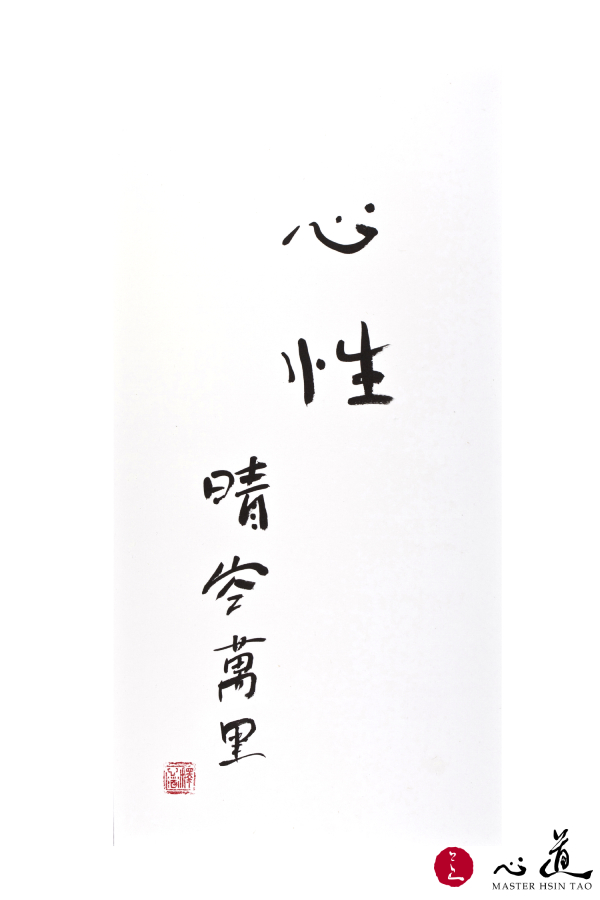 心性
晴空萬里
心道
MASTER HSIN TAO